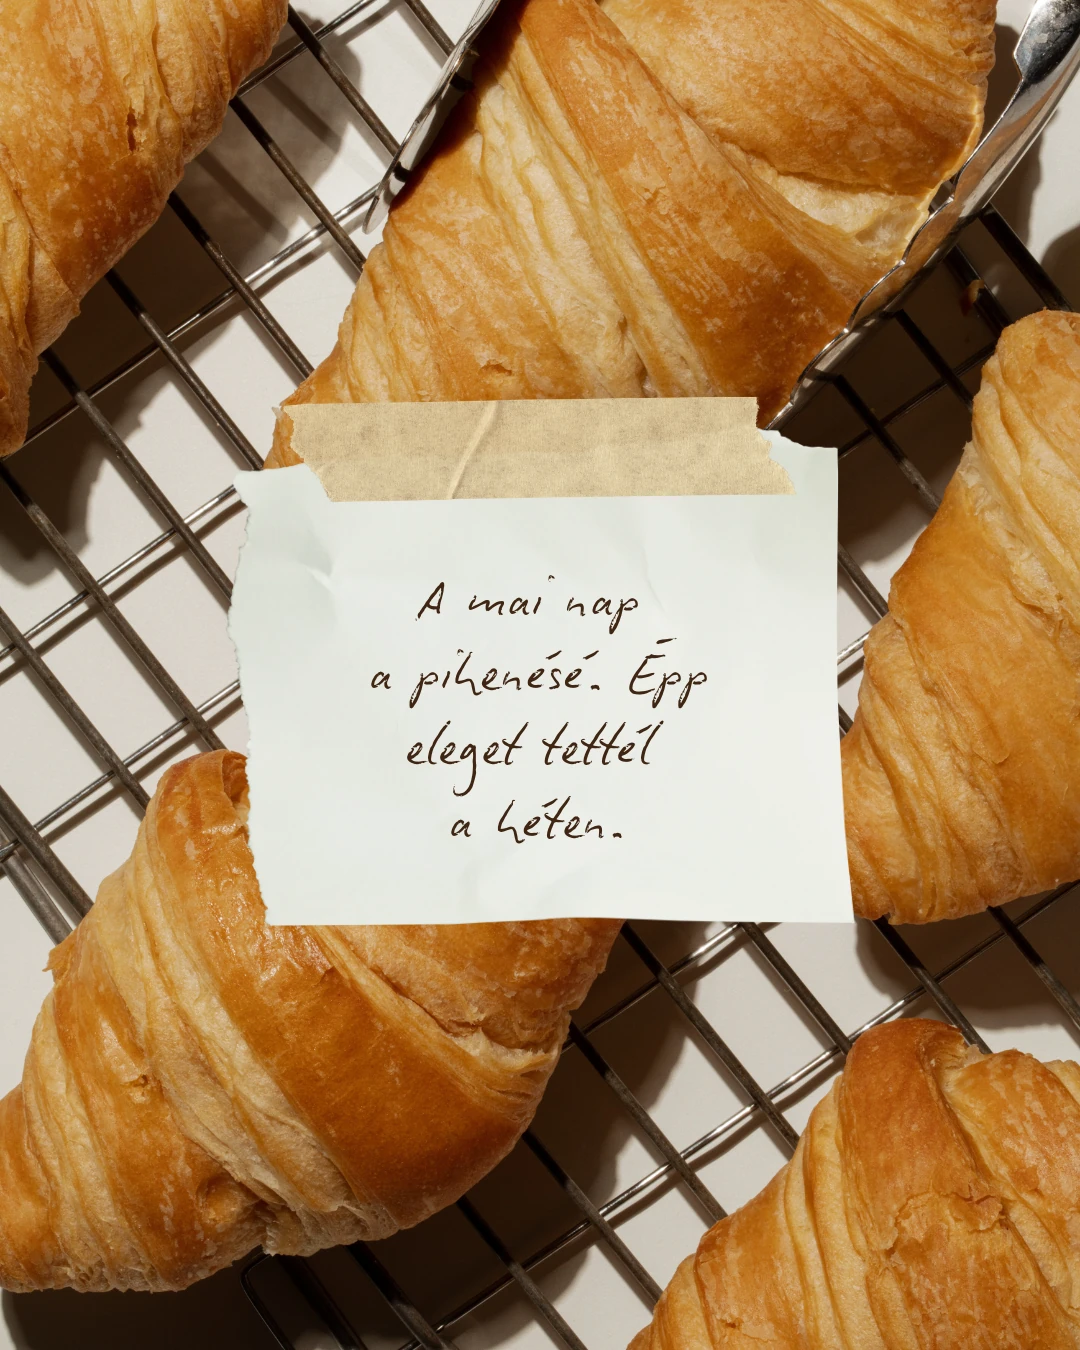 A mai nap
a pihenésé. Épp
eleget tettél
a héten.